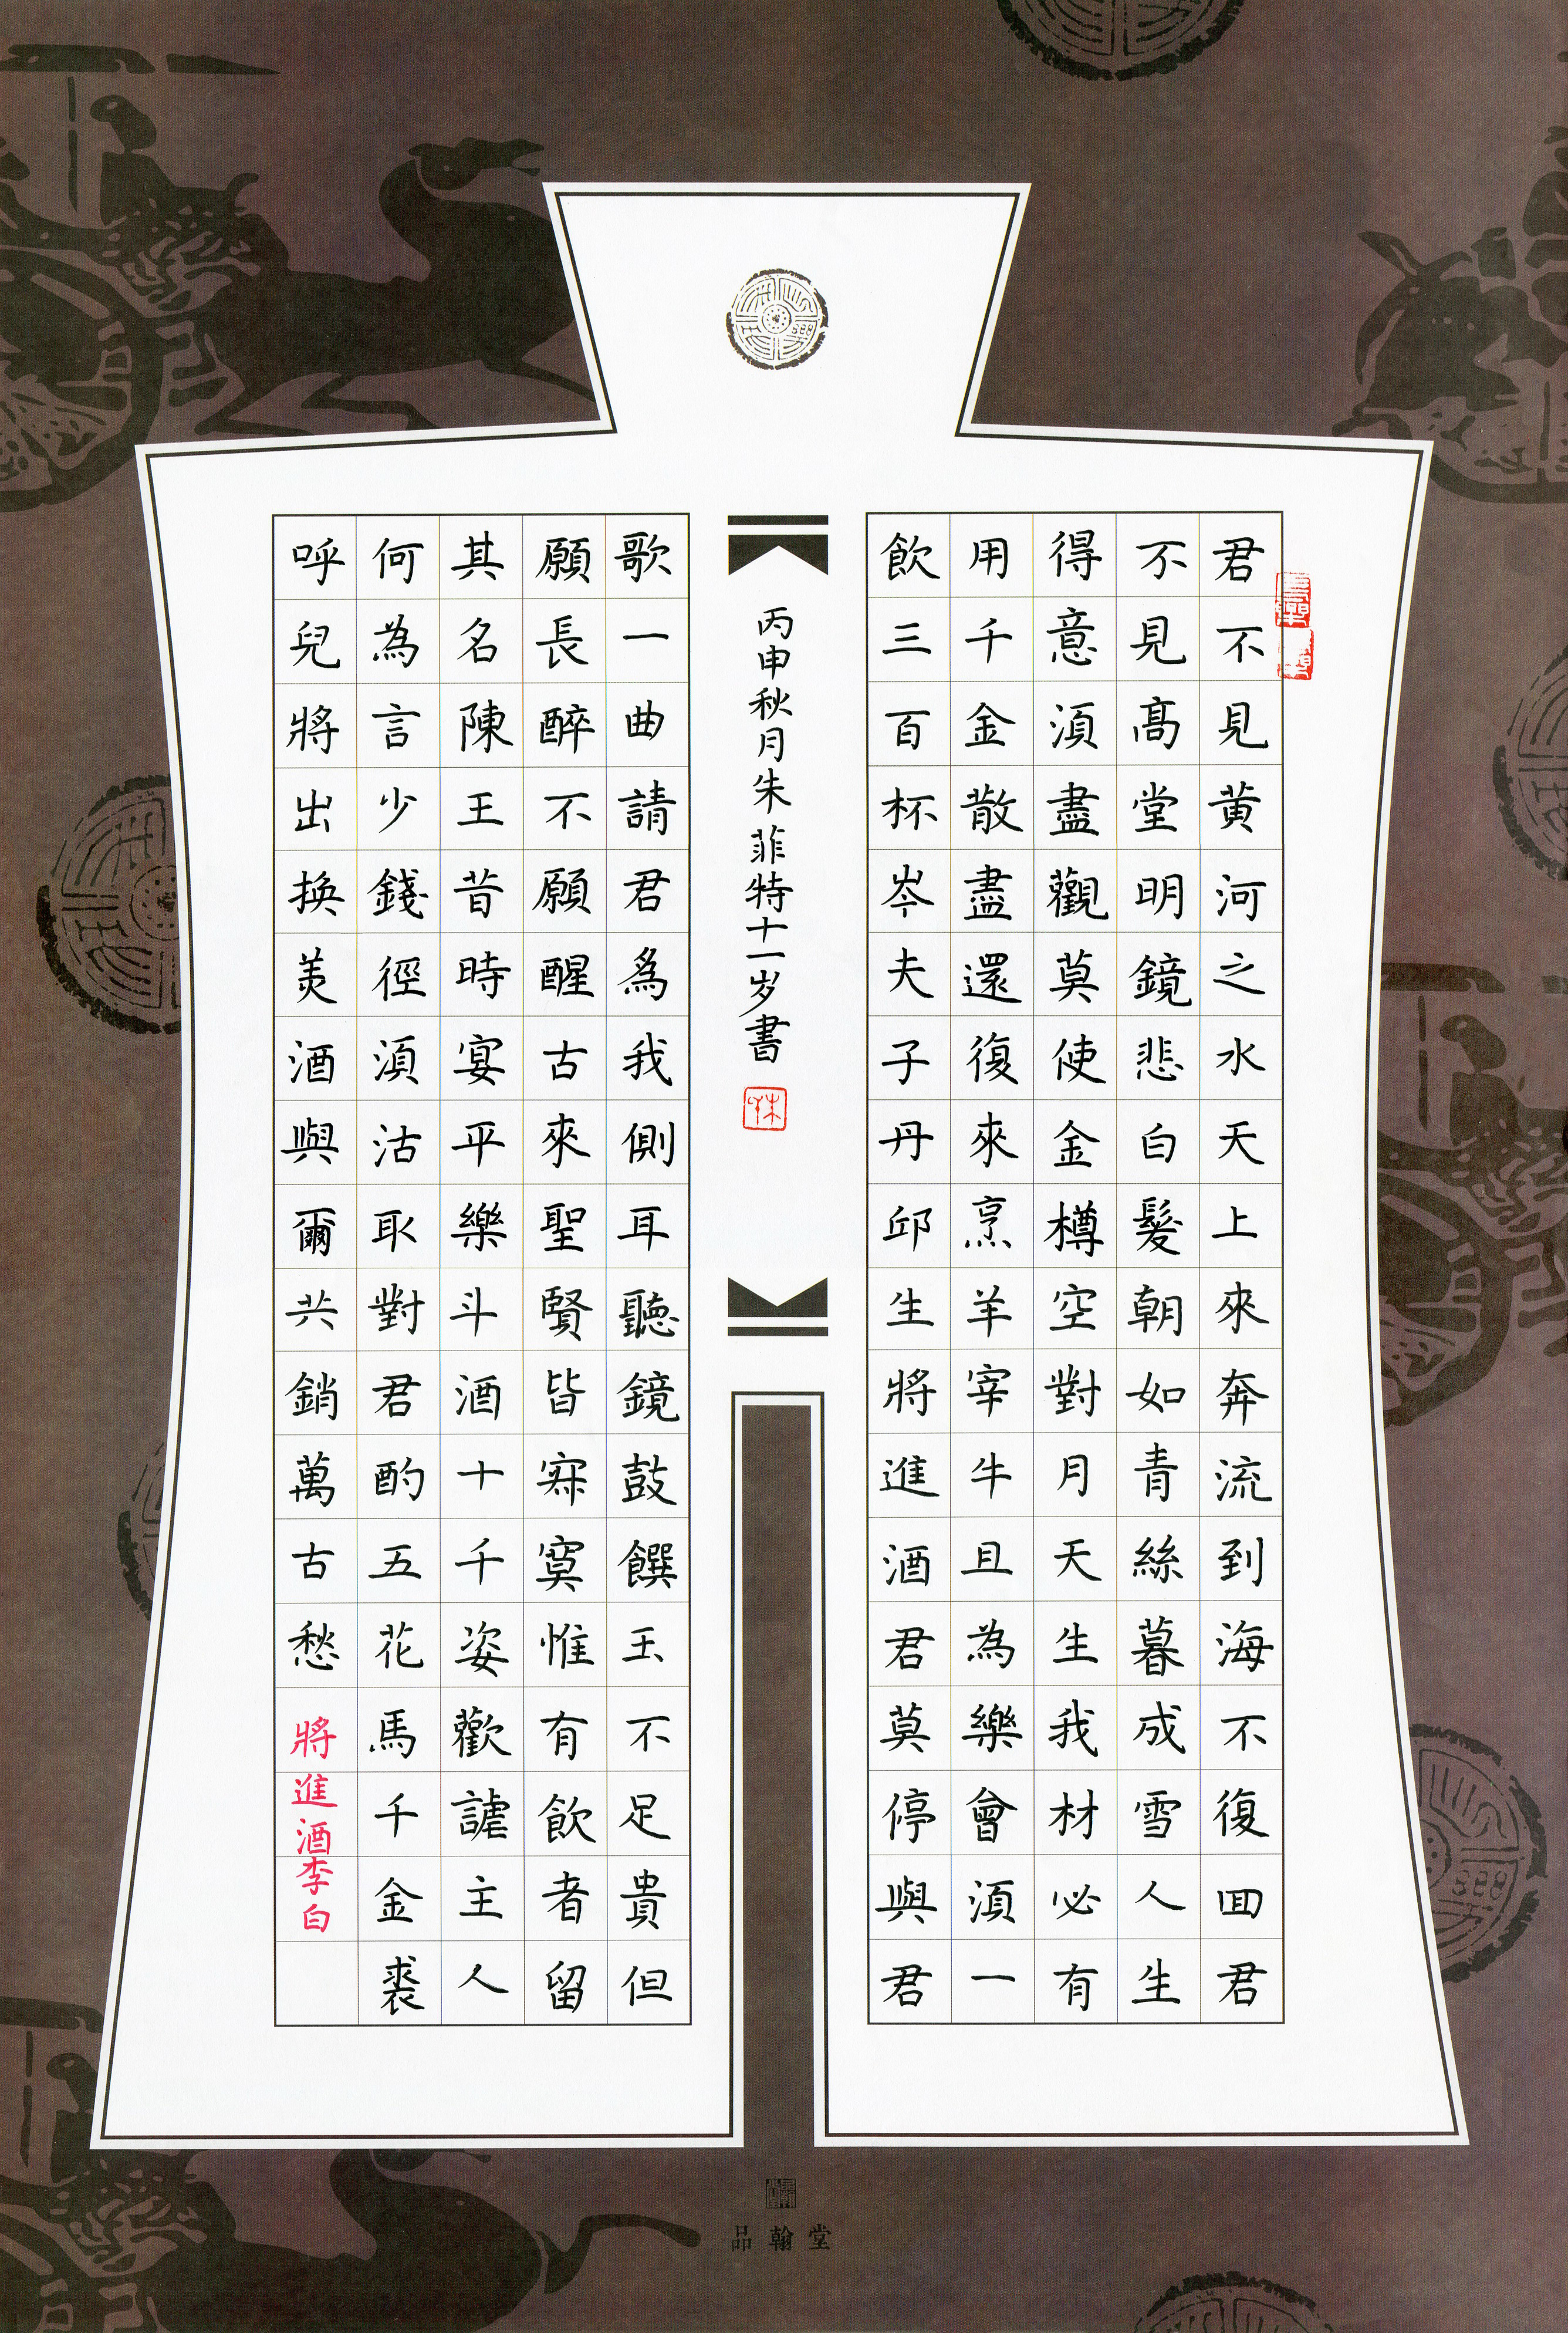 君不見黄河之水天上來奔流到海不復回君
不見髙堂明鏡悲白髮朝如青絲暮成雪人生
得意須盡觀莫使金樽空對月天生我材必有
用千金散盡還復來烹羊宰牛且為樂會須一
飲三百杯岑夫子丹邱生將進酒君莫停與君
丙申秋月朱菲特十一岁書
歌一曲請君為我側耳聽鏡鼓饌玉不足貴但
願長醉不願醒古來聖賢皆寂寞惟有飲者留
其名陳王昔時宴平樂斗酒十千姿歡謔主人
何為言少錢徑須沽取對君酌五花馬千金裘
呼兒將出換美酒與爾共銷萬古愁
將進酒李白
品翰堂